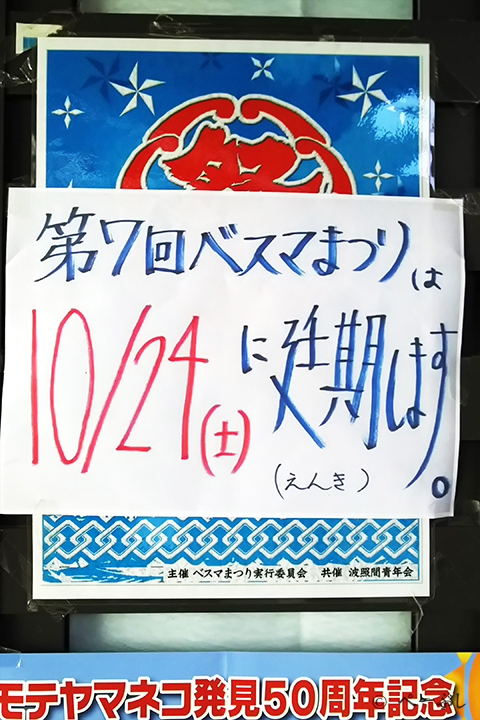 第7回ベスマまつりは
10/24(土)に延期します。
(えんき)
主催 ベスマまつり実行委員会 共催 波照間青年会
モテヤマネコ発見50周年記念